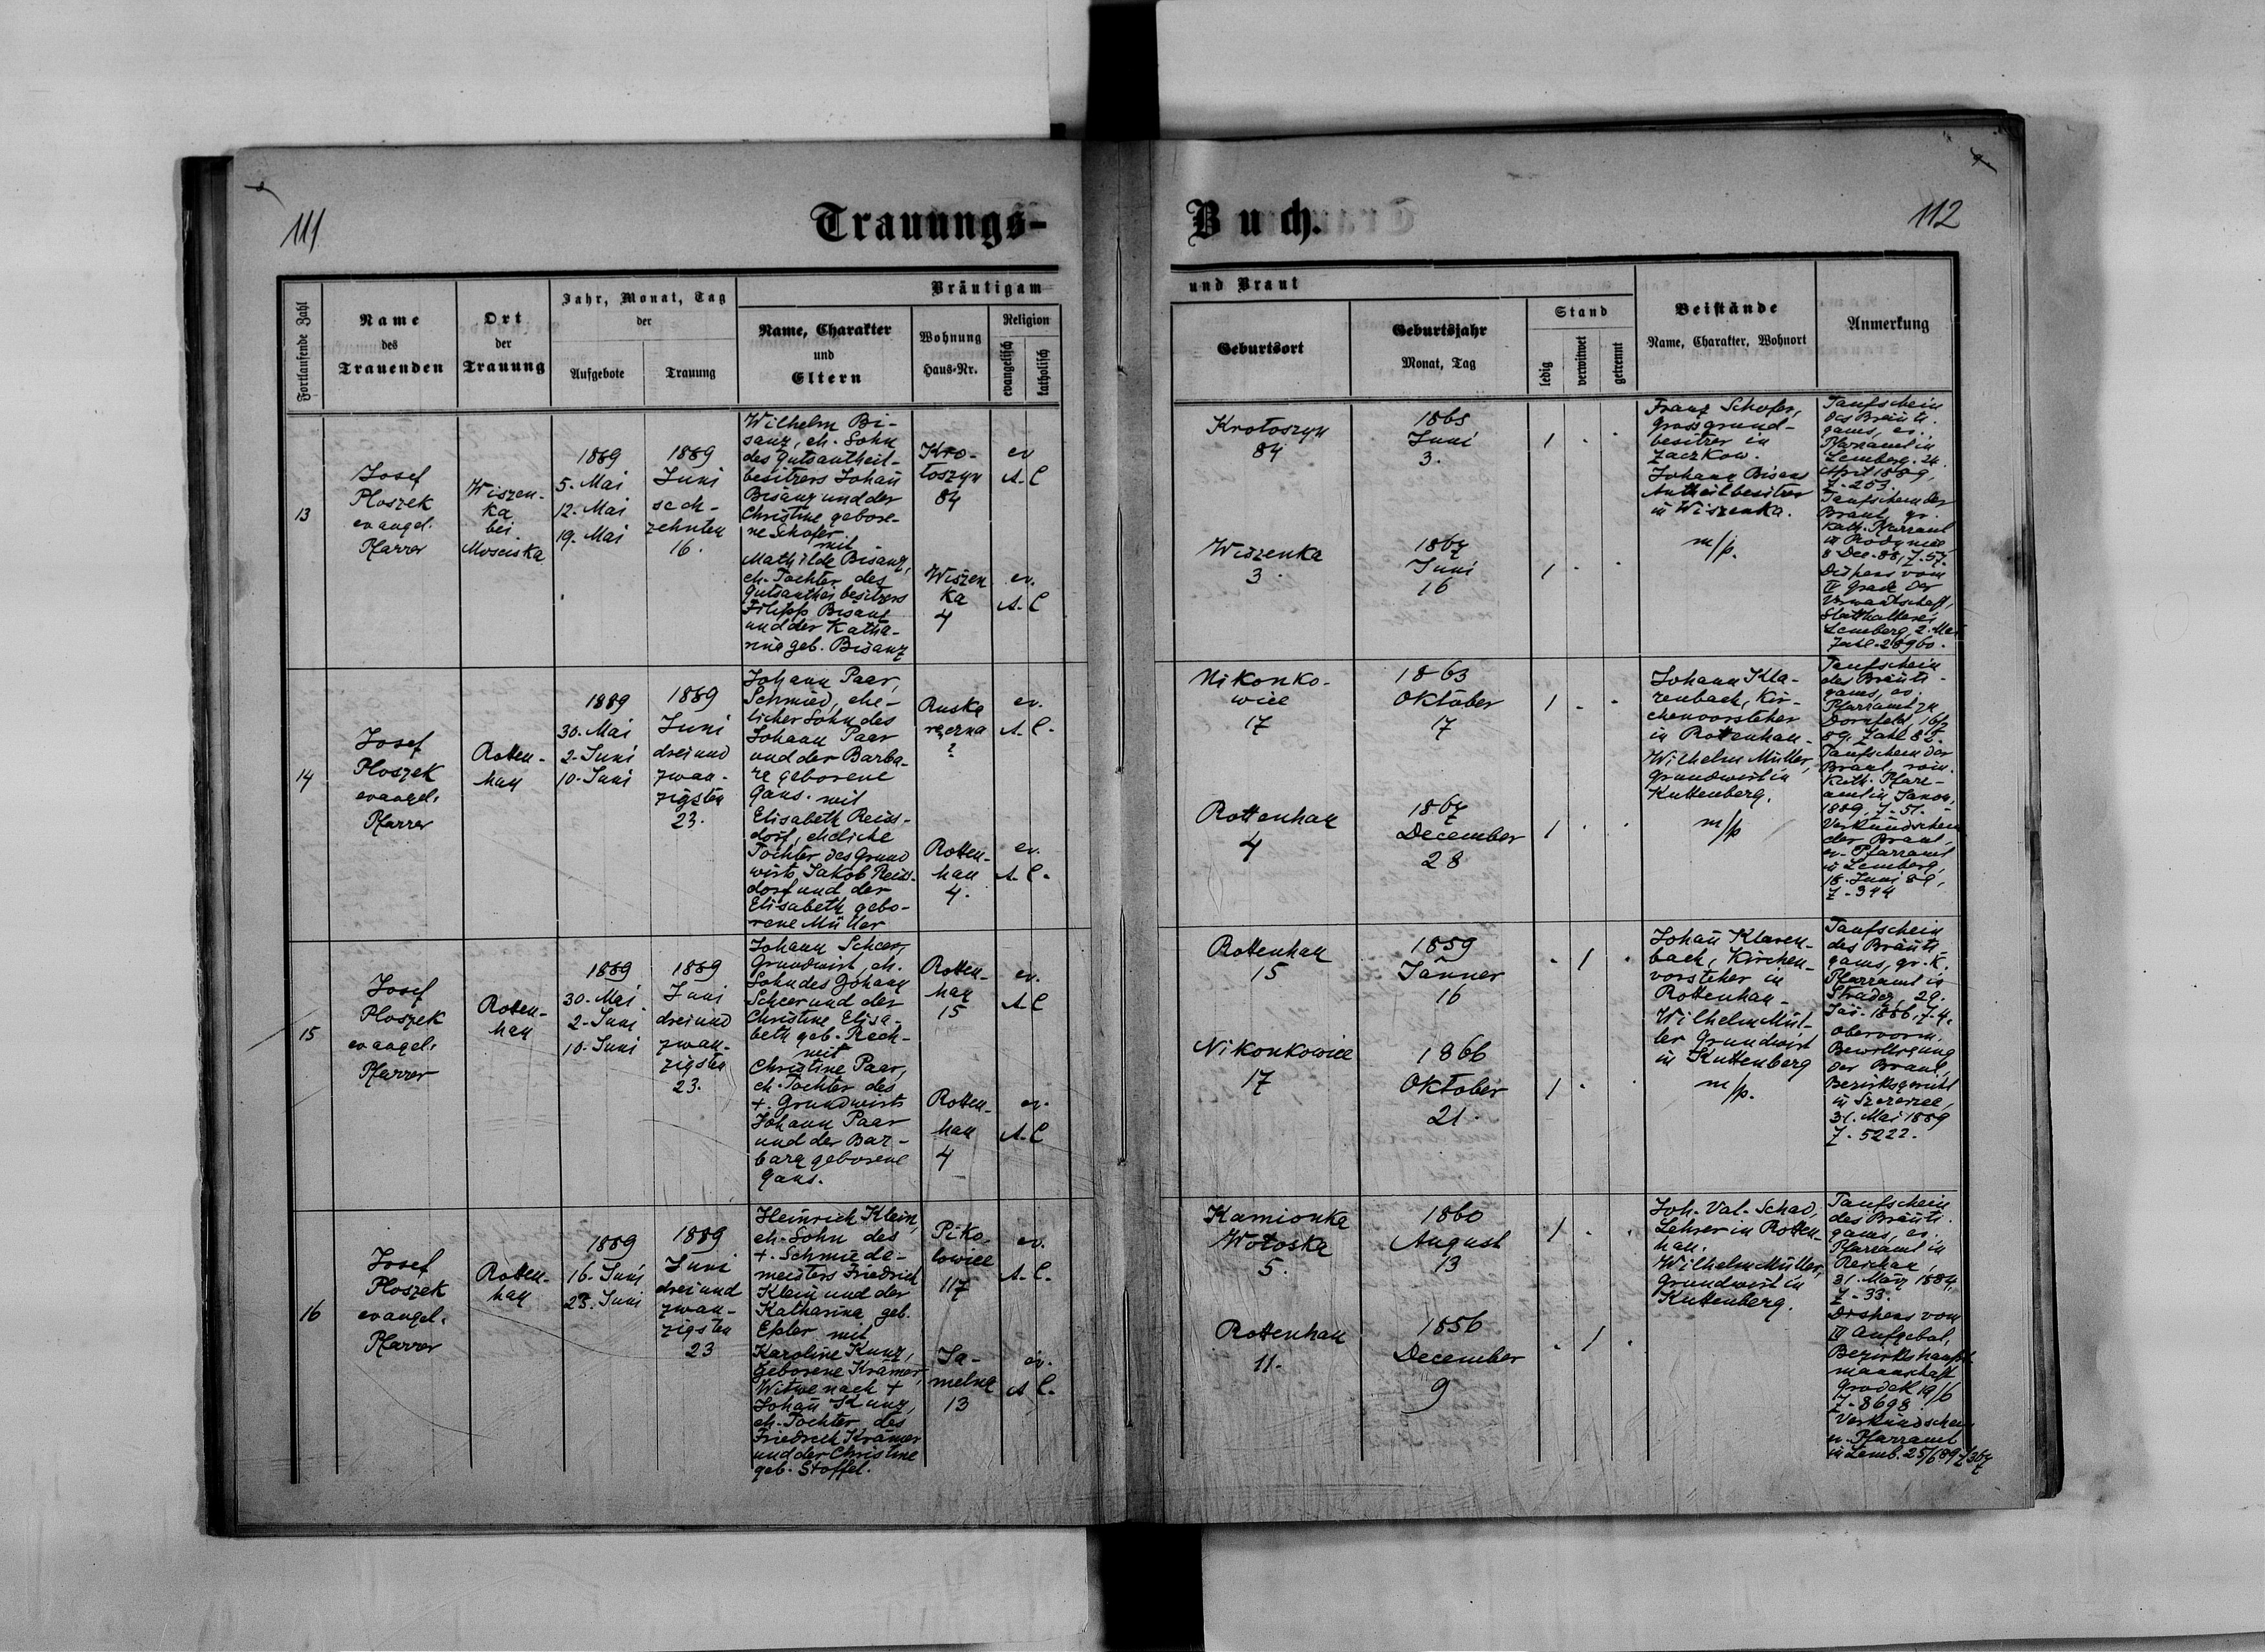 111
Trauungs-
Buch.
112
Fortlaufende Zahl
Name
des
Trauenden
Ort
der
Trauung
Jahr, Monat, Tag
der
Aufgebote
Trauung
Bräutigam
Name, Charakter
und
Eltern
Wohnung
Haus-Nr.
Religion
evangelisch
katholisch
und Braut
Geburtsort
Geburtsjahr
Monat, Tag
Stand
ledig
verwitwet
getrennt
Beistände
Name, Charakter, Wohnort
Anmerkung
13
Josef
Ploszek
evangel.
Pfarrer
Wiszen-
ka
bei
Mosciska
1889
5. Mai
12. Mai
19. Mai
1889
Juni
sech-
zehnten
16.
Wilhelm Bi-
sanz, eh. Sohn
des Gutsantheil-
besitzers Johañ
Bisanz und der
Christine gebore-
ne Schofer
mit
Mathilde Bisanz,
eh. Tochter des
Gutsanthei besitzers
Filipp Bisanz
und der Katha-
rina geb. Bisanz
Kro-
toszyn
84
ev
A. C
Wiszen
ka
4
ev.
A. C
Krotoszyn
84
1865
Juni
3.
1 . .
Wiszenka
3.
1867
Juni
16
1 . .
Franz Schofer,
Grossgrund-
besitzer in
Zaczkow.
Johann Bisanz
Antheilbesitzer
in Wiszenka.
m/p.
Taufschein
des Bräuti-
gams, ev.
Pfarramt in
Lemberg. 24.
April 1889,
Z. 253.
Taufschein der
Braut, gr.
kath. Pfarramt
in
8 Dec. 88, Z. 57.
Dispens vom
IV Grade der
Verwandtschaft,
Statthalterei
Lemberg, 2. Mai
Zahl. 28960.
14
Josef
Ploszek
evangel.
Pfarrer
Rotten-
han
1889
30. Mai
2. Juni
10. Juni
1889
Juni
drei und
zwan-
zigsten
23.
Johann Paar,
Schmied, ehe-
licher Sohn des
Johann Paar
und der Barba-
ra geborene
Gans. mit
Elisabeth Reins-
dorf, eheliche
Tochter des Grund
wirts Jakob Reins-
dorf und der
Elisabeth gebo-
rene Müller
Ruska
?
ev.
A. C.
Rotten-
han
4.
ev.
A. C.
Nikonko-
wice
17
1863
Oktober
17
1 . .
Rottenhan
4
1867
December
28
1 . .
Johann Kla-
renbach, Kir-
chenvorsteher
in Rottenhan.
Wilhelm Müller,
Grundwirt in
Kuttenberg.
m/p
Taufschein
des Bräuti-
gams, ev.
Pfarramt zu
Dornfeld, 16/
89, Zahl 82.
Taufschein der
Braut, röm.
Kath. Pfarr-
amt in Janow,
1889, Z. 51.
Verkündschein
der Braut,
ev. Pfarramt
in Lemberg,
18. Juni 89,
Z. 344
15
Josef
Ploszek
evangel.
Pfarrer
Rotten-
han
1889
30. Mai
2. Juni
10. Juni
1889
Juni
drei und
zwan-
zigsten
23.
Johann Scheer,
Grundwirt, eh.
Sohn des Johann
Scheer und der
Christine Elisa-
beth geb. Rech-
mit
Christine Paar,
eh. Tochter des
+. Grundwirts
Johann Paar
und der Bar-
bara geborene
Gans.
Rotten-
han
15
ev.
A. C
Rotten-
han
4
ev.
A. C
Rottenhan
15
1859
Jänner
16
. 1 .
Nikonkowice
17
1866
Oktober
21.
1 . .
Johañ Klaren-
bach, Kirchen-
vorsteher in
Rottenhan.
Wilhelm Mül-
ler Grundwirt
in Kuttenberg
m/p.
Taufschein
des Bräuti-
gams, gr. k.
Pfarramt in
Stradcz, 29.
Jän. 1886, Z. 4.
Obervorm.
Bewilligung
der Braut,
Bezirksgericht
in Szczerzec,
31. Mai 1889
Z. 5222.
16
Josef
Ploszek
evangel.
Pfarrer
Rotten-
han
1889
16. Juni
23. Juni
1889
Juni
drei und
zwan-
zigsten
23
Heinrich Klein,
eh. Sohn des
+. Schmiede-
meisters Friedrich
Klein und der
Katharina geb.
Epler mit
Karoline Kunz,
geborene Krämer,
Witwe nach +
Johañ Kunz,
eh. Tochter des
Friedrich Krämer
und der Christine
geb. Stoffel.
Piko-
lowice
117
ev.
A. C.
Ja-
melna
13
ev.
A. C.
Kamionka
Wołoska
5.
1860
August
13
1 . .
Rottenhan
11.
1856
December
9
. 1 .
Joh. Val. Schad,
Lehrer in Rotten
han.
Wilhelm Müller,
Grundwirt in
Kuttenberg.
Taufschein
des Bräuti-
gams, ev.
Pfarramt in
Reichau,
31. März 1884,
Z. 33.
Dispens vom
III Aufgebot,
Bezirkshaupt-
mannschaft
Grodek 19/6
Z. 8698.
Verkündschein
ev. Pfarramt
in Lemb. 25/6 89 Z 367